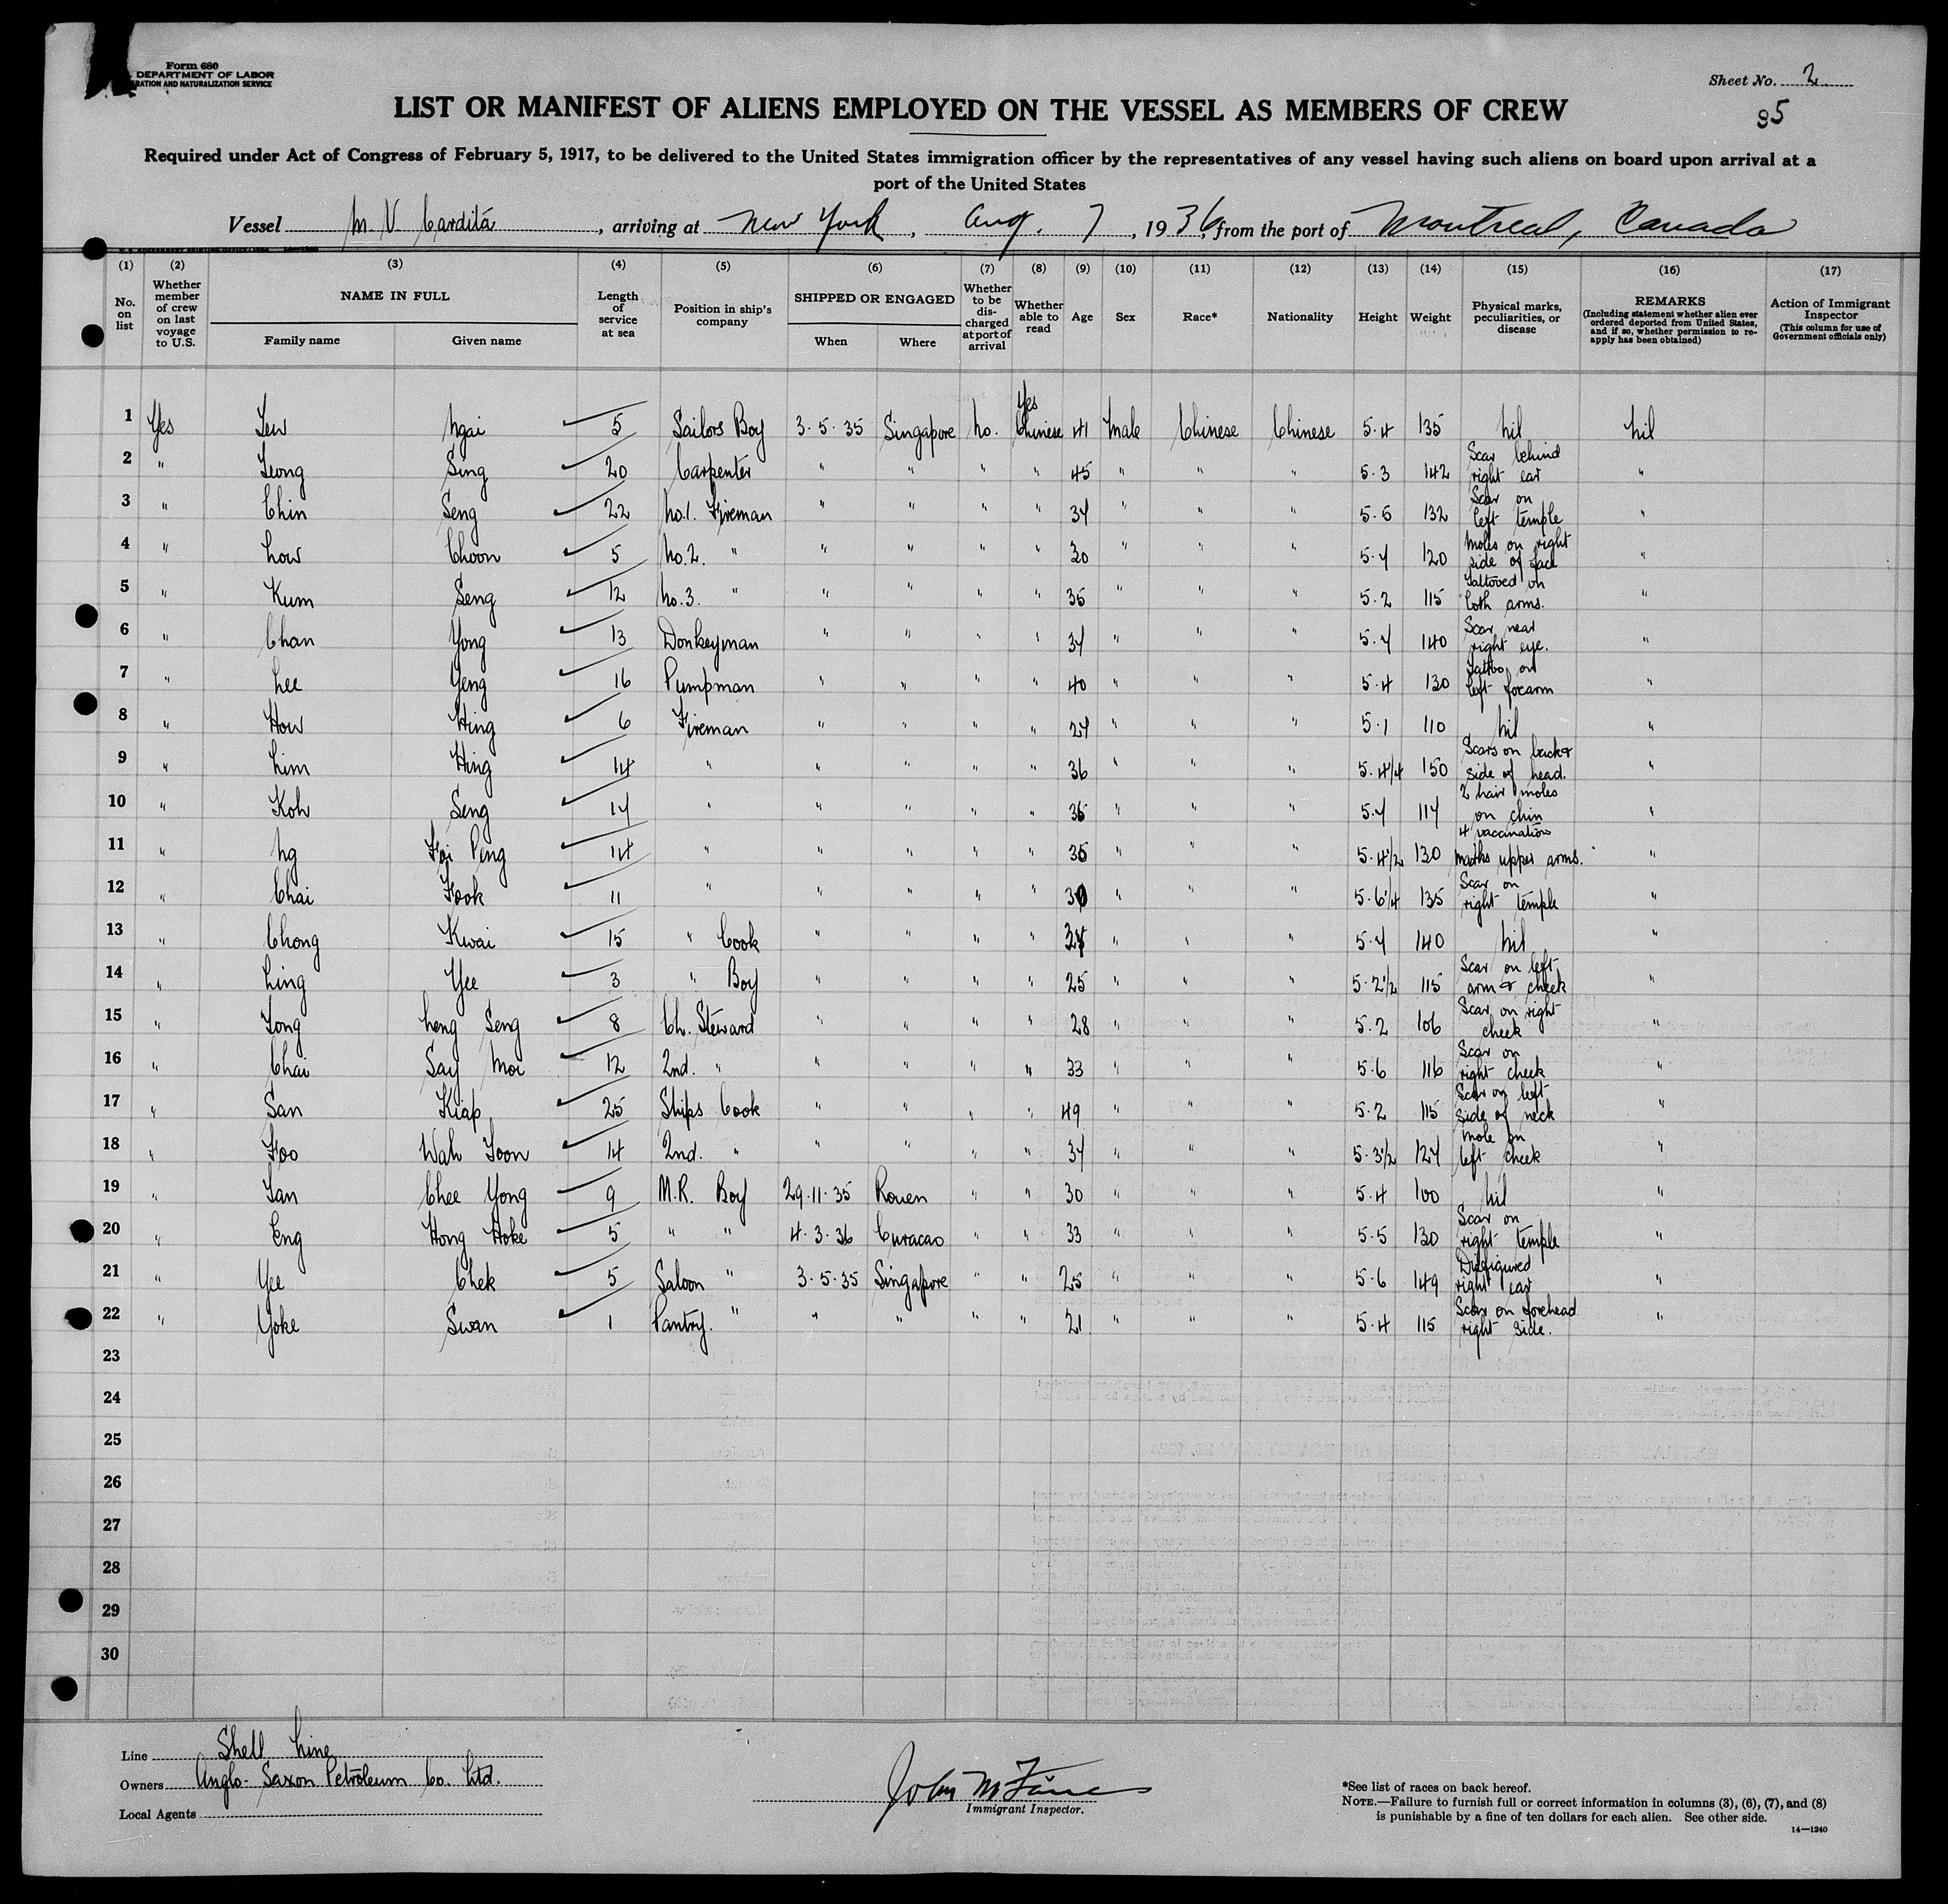 Form 680
DEPARTMENT OF LABOR
RATION AND NATURALIZATION SERVICE
Sheet No. 2
LIST OR MANIFEST OF ALIENS EMPLOYED ON THE VESSEL AS MEMBERS OF CREW
85
Required under Act of Congress of February 5, 1917, to be delivered to the United States immigration officer by the representatives of any vessel having such aliens on board upon arrival at a
port of the United States
Vessel M. V. Cardita, arriving at New York, Aug. 7, 1936, from the port of Montreal, Canada
(1) (2) (3) (4) (5) (6) (7) (8) (9) (10) (11) (12) (13) (14) (15) (16) (17)
No. on list
Whether member of crew on last voyage to U.S.
NAME IN FULL
Family name Given name
Length of service at sea
Position in ship's company
SHIPPED OR ENGAGED
When Where
Whether to be discharged at port of arrival
Whether able to read
Age
Sex
Race*
Nationality
Height
Weight
Physical marks, peculiarities, or disease
REMARKS
(Including statement whether alien ever ordered deported from United States, and if so, whether permission to re-apply has been obtained)
Action of Immigrant Inspector
(This column for use of Government officials only)
1 Yes Lew Ngai 5 Sailors Boy 3.5.35 Singapore No. Yes Chinese 41 Male Chinese Chinese 5.4 135 Nil Nil
2 " Leong Sing 20 Carpenter " " " " 45 " " " 5.3 142 Scar behind right ear "
3 " Chin Seng 22 No.1. Fireman " " " " 34 " " " 5.5 132 Scar on left temple "
4 " Low Choon 5 No.2. " " " " " 30 " " " 5.4 120 Moles on right side of face "
5 " Kum Seng 12 No.3. " " " " " 35 " " " 5.2 115 Tattooed on both arms. "
6 " Chan Yong 13 Donkeyman " " " " 34 " " " 5.4 140 Scar near right eye. "
7 " Lee Yeng 16 Pumpman " " " " 40 " " " 5.4 130 Tattoo on left forearm "
8 " How Hing 6 Fireman " " " " 24 " " " 5.1 110 Nil "
9 " Lim Hing 14 " " " " " 36 " " " 5.4 1/4 150 Scars on back & side of head. "
10 " Koh Seng 14 " " " " " 36 " " " 5.4 114 2 hair moles on chin "
11 " Ng Fei Peng 14 " " " " " 36 " " " 5.4 1/2 130 4 vaccination marks upper arms. "
12 " Chai Fook 11 " " " " " 30 " " " 5.6 1/4 135 Scar on right temple "
13 " Chong Kwai 15 " Cook " " " " " " " 5.4 140 Nil "
14 " Ling Yee 3 " Boy " " " " 25 " " " 5.2 1/2 115 Scar on left arm & cheek "
15 " Tong Leng Seng 8 Ch. Steward " " " " 28 " " " 5.2 106 Scar on right cheek "
16 " Chai Say Moi 12 2nd. " " " " " 33 " " " 5.6 116 Scar on right cheek "
17 " San Kiap 25 Ships Cook " " " " 49 " " " 5.2 115 Scar on left side of neck "
18 " Foo Wah Toon 14 2nd. " " " " " 34 " " " 5.3 1/2 124 Mole on left cheek "
19 " Tan Chee Yong 9 M.R. Boy 29.11.35 Rouen " " 30 " " " 5.4 100 Nil "
20 " Eng Hong Hoke 5 " " 4.3.36 Curacao " " 33 " " " 5.5 130 Scar on right temple "
21 " Yee Chek 5 Saloon " 3.5.35 Singapore " " 25 " " " 5.6 149 Disfigured right ear "
22 " Yoke Swan 1 Pantry. " " " " " 21 " " " 5.4 115 Scar on forehead right side. "
23
24
25
26
27
28
29
30
Line Shell Line
Owners Anglo-Saxon Petroleum Co. Ltd.
Local Agents
Immigrant Inspector.
*See list of races on back hereof.
NOTE.—Failure to furnish full or correct information in columns (3), (6), (7), and (8)
is punishable by a fine of ten dollars for each alien. See other side.
14—1240